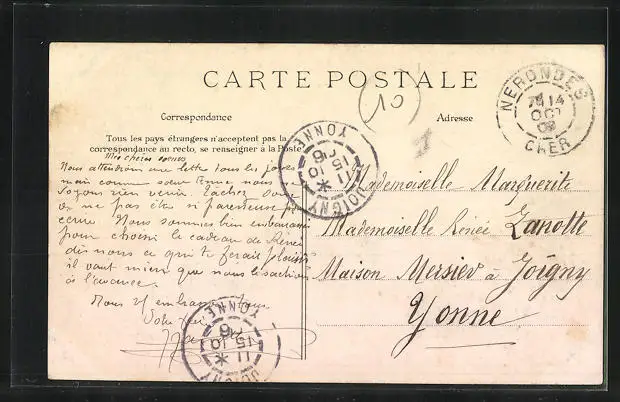 CARTE POSTALE
Correspondance
Adresse
Tous les pays étrangers n'acceptent pas la
correspondance au recto, se renseigner à la Poste
Mes chères soeurs
Nous attendions une lettre tous les jours
mais comme soeur Anne nous
voyons rien venir Tachez donc
de ne pas être si paresseuse
Nous sommes bien embarrassé
pour choisir le cadeau de Renée
dis nous ce qui te ferait plaisir
il vaut mieux que nous le sachions
à l'avance.
Nous vous embrassons tous
Votre
Mademoiselle Marguerite
Mademoiselle Renée Zanotte
Maison Mersier à Joigny
Yonne
(10)
NERONDES
14
OCT
09
CHER
JOIGNY
YONNE
11
15 10
JOIGNY
YONNE
11
15 10